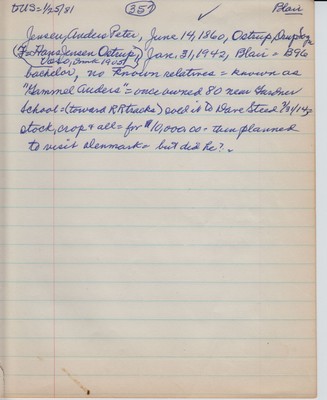 DUS= 1/25/81 357 ✓ Blair
Jensen, Anders Peter, June 14, 1860, Ostrup,
(F= Hans Jensen Ostrup,) Jan. 31, 1942, Blair = B96
bachelor, no known relatives = known as
"Gammel Anders" = once owned 80 near Gardner
School = (toward RRtracks) sold it to Dave Steed
stock, crop & all = for $10,000.00 - then planned
to visit Denmark - but did he?